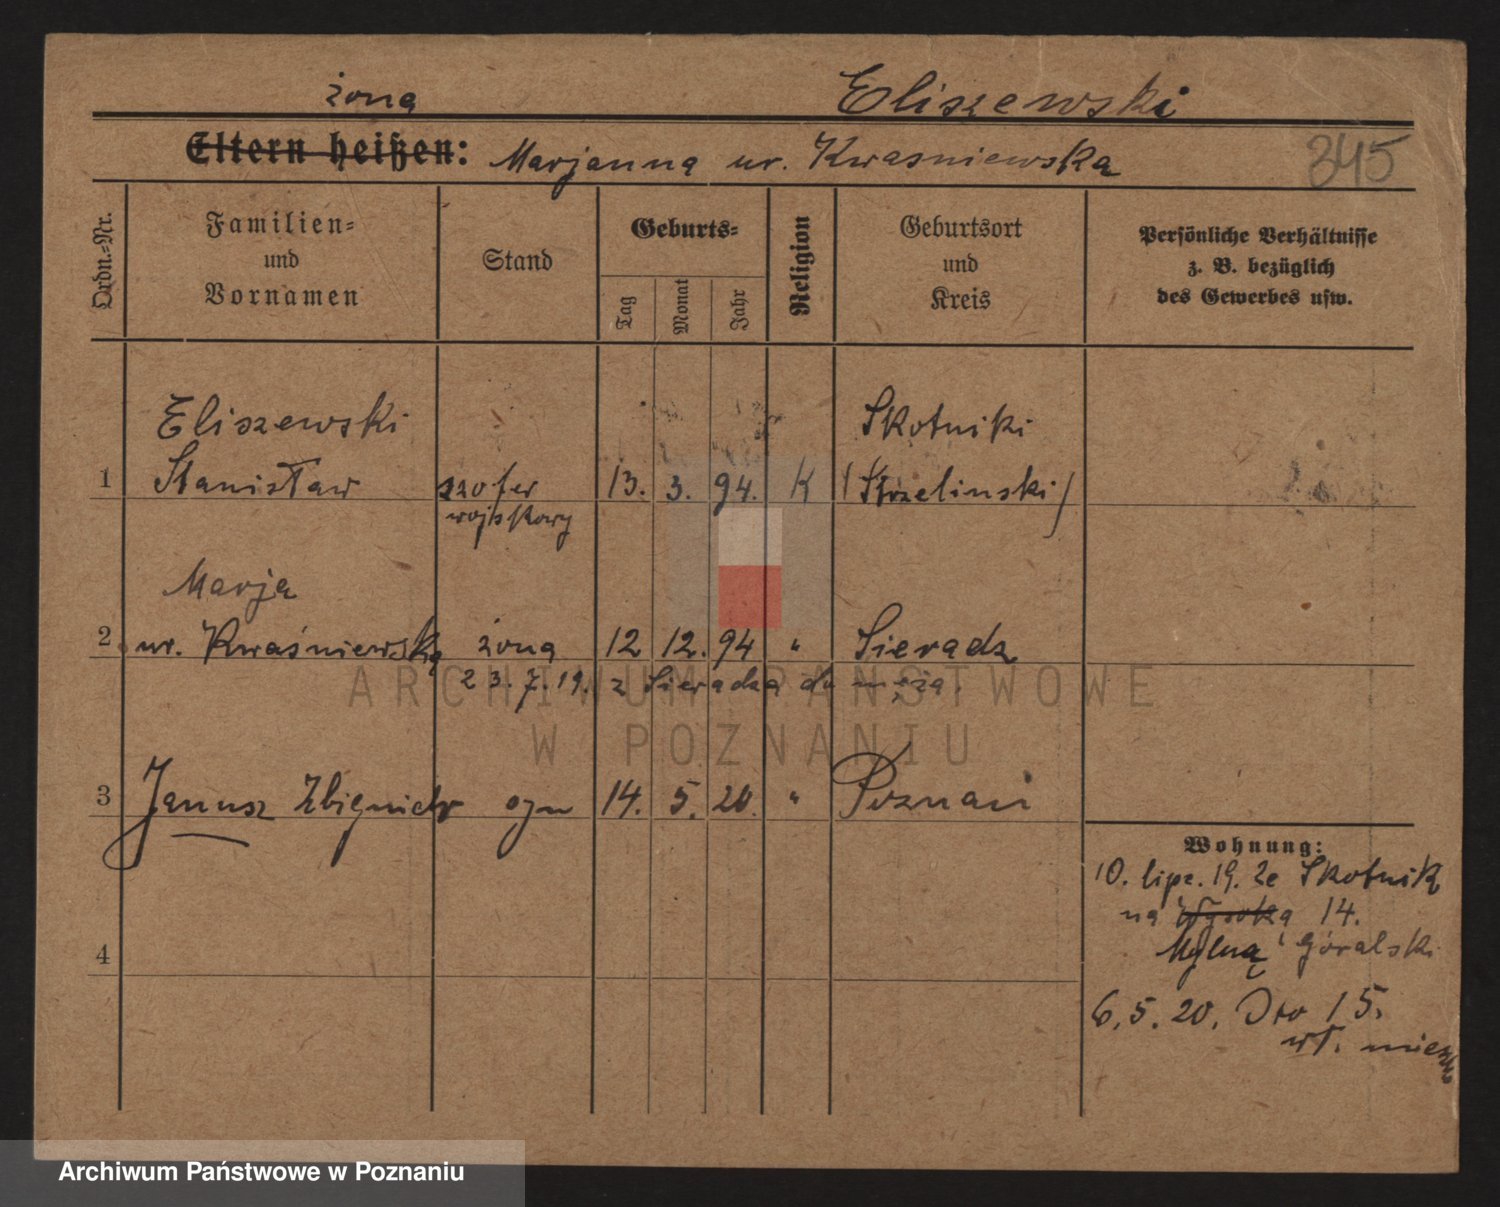 żona Eliszewski
Eltern heißen: Marjanna ur. Kwasniewska 345
Ordn.-Nr.
Familien-
und
Vornamen
Stand
Geburts-
Tag
Monat
Jahr
Religion
Geburtsort
und
Kreis
Persönliche Verhältnisse
z. B. bezüglich
des Gewerbes usw.
Eliszewski Skotniki
1 Stanisław szofer 13. 3. 94. K (Strzelinski)
wojskowy
Marja
2 ur. Kwaśniewska żona 12 12. 94 " Sieradz
23.7.19. z Sieradza do męża.
3 Janusz Zbigniew syn 14. 5. 20. " Poznań
4
Wohnung:
10. lipz. 19. ze Skotnik
na Wysoka 14.
Mylną Góralski
6.5.20. Dto 15.
wł. mieszk
ARCHIWUM PAŃSTWOWE
W POZNANIU
Archiwum Państwowe w Poznaniu